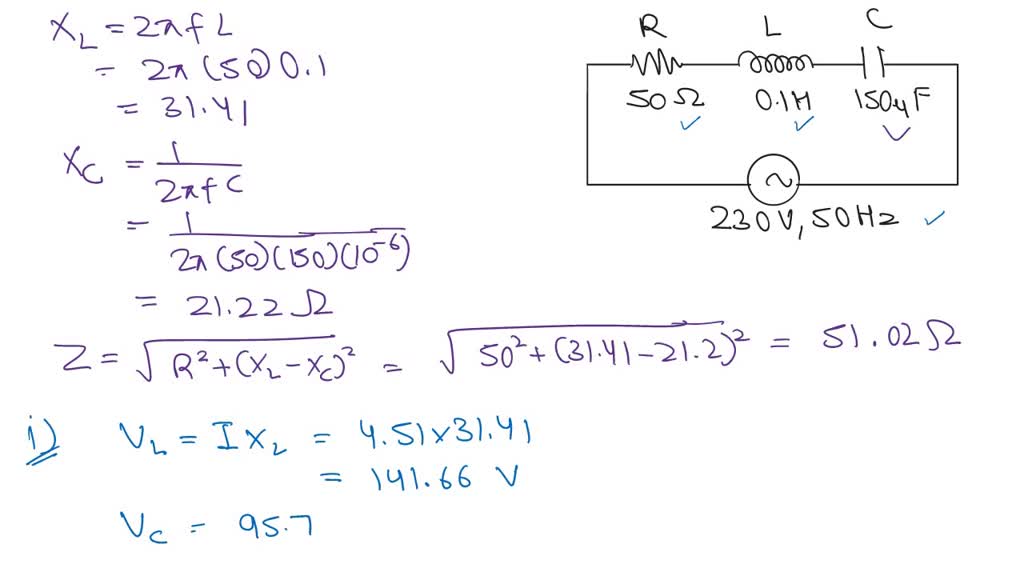 X_L = 2πfL
= 2π(50)0.1
= 31.41
X_C = 1/(2πfC)
= 1/(2π(50)(150)(10^-6))
= 21.22 Ω
Z = √(R² + (X_L - X_C)²) = √(50² + (31.41 - 21.2)²) = 51.02 Ω
i) V_L = I X_L = 4.51 × 31.41
= 141.66 V
V_C = 95.7
R L C
50 Ω 0.1H 150μF
230V, 50Hz